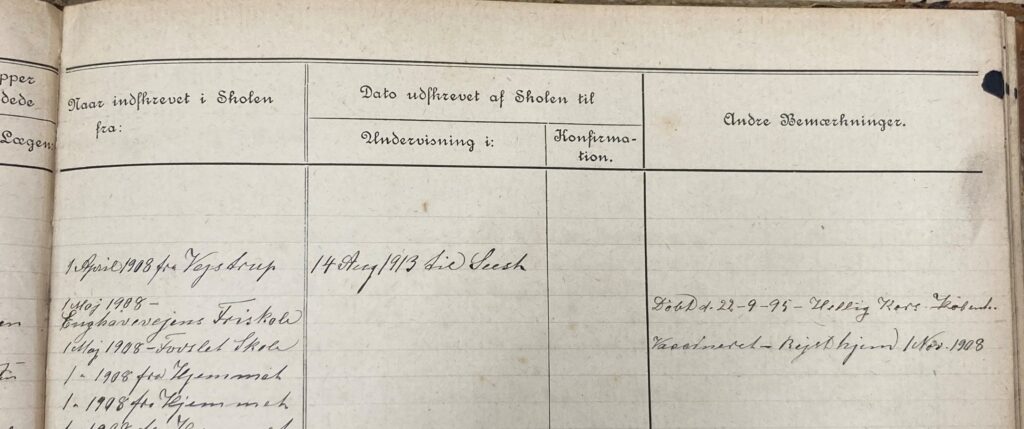 pper
dede
Lægen
Naar indskrevet i Skolen
fra:
Dato udskrevet af Skolen til
Undervisning i:
Konfirma-
tion.
Andre Bemærkninger.
1 April 1908 fra Vejstrup
14 Aug 1913 til Seest
1 Maj 1908 -
Enghavevejens Friskole
Døbt d. 22-9-95 - Hellig Kors - Københ.
1 Maj 1908 - Fovslet Skole
Vaccineret - Rejst hjem 1 Nov. 1908
1 " 1908 fra Hjemmet
1 " 1908 fra Hjemmet
1 " 1908 fra Hjemmet